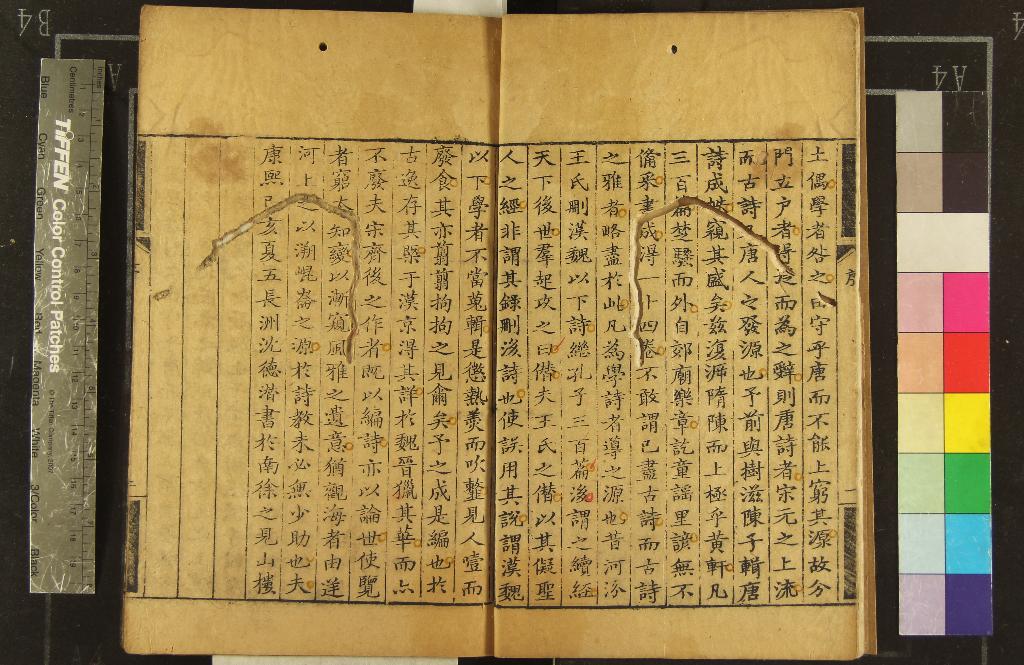 土偶學者咎之曰守乎唐而不能上窮其源故分
門立户者得從而為之辭則唐詩者宋元之上流
而古詩又唐人之發源也予前與樹滋陳子輯唐
詩成帙窺其盛矣兹復溯隋陳而上極乎黃軒凡
三百篇楚騷而外自郊廟樂章訖童謡里諺無不
備采書成得十四卷不敢謂已盡古詩而古詩
之雅者略盡於此凡為學詩者導之源也昔河汾
王氏刪漢魏以下詩繼孔子三百篇後謂之續經
天下後世羣起攻之曰僭夫王氏之僭以其儗聖
人之經非謂其錄刪後詩也使誤用其說謂漢魏
以下學者不當蒐輯是懲熱羹而吹虀見人噎而
廢食其亦翦翦拘拘之見爾矣予之成是編也於
古逸存其槩于漢京得其詳於魏晉獵其華而亦
不廢夫宋齊後之作者既以編詩亦以論世使覽
者窮本知變以漸窺風雅之遺意猶觀海者由逆
河上之以溯崑崙之源於詩教未必無少助也夫
康熙己亥夏五長洲沈德潛書於南徐之見山樓
B4
A4
TIFFEN Color Control Patches
Centimetres
Inches
Blue
Cyan
Green
Yellow
Red
Magenta
White
3/Color
Black